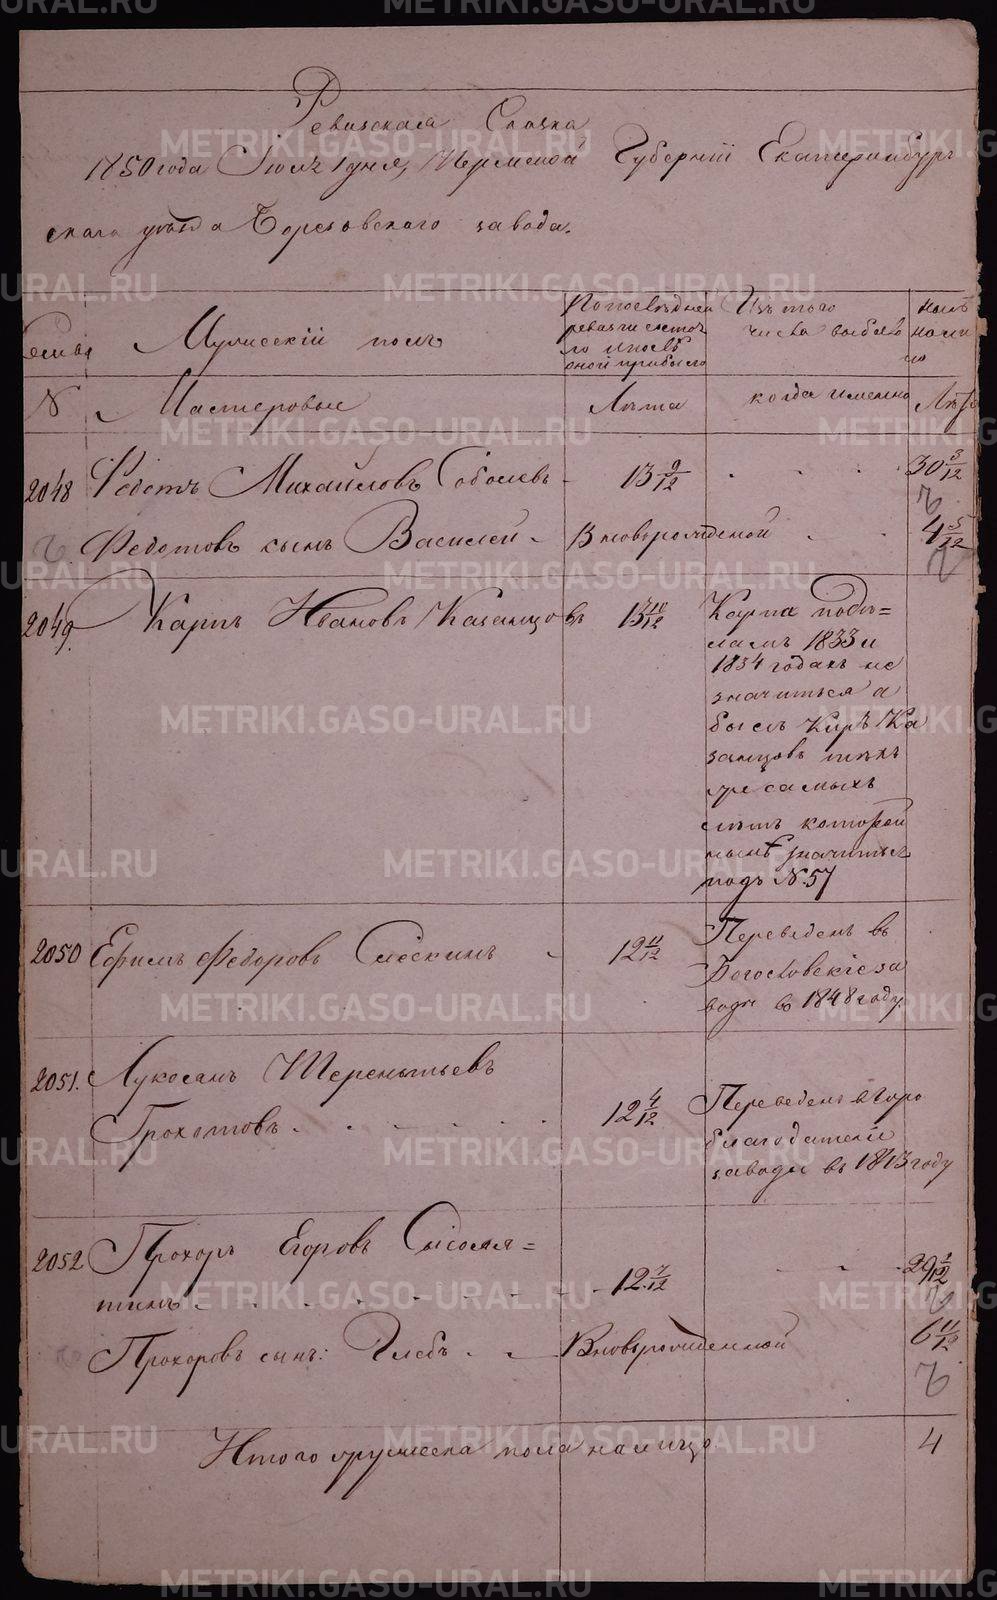 Ревизская Сказка
1850 года Июля 1 дня, Пермской Губернiи Екатеринбург
скаго уѣзда Березовскаго завода.
Семьи
Мужескiй полъ
По послѣдней
ревизiи состоя
ло и послѣ
оной прибыло
Изъ того
числа выбыло
нынѣ
на ли
цо
N
Мастеровые
Лѣта
когда именно
Лѣта
2048 Федотъ Михайловъ Соболевъ 13 9/12 30 3/12
Федотовъ сынъ Василей Вновьрожденной 4 5/12
2049. Карпъ Ивановъ Казанцовъ 13 10/12
Карпа по дѣ=
ламъ 1833 и
1834 годахъ не
значиться а
былъ Киръ Ка
занцовъ тѣхъ
же самыхъ
лѣтъ которой
нынѣ значится
подъ N. 57
2050 Ефимъ Федоровъ 12 11/12
Переведенъ въ
Богословскiе за
воды въ 1848 году.
2051. Терентьевъ
Грохотовъ 12 4/12
Переведенъ в Горо
благодатскiе
заводы въ 1843 году
2052 Прохоръ Егоровъ Сысоля=
тинъ 12 7/12 29 1/12
Прохоровъ сынъ: Глебъ Вновьрожденной 6 11/12
Итого мужеска пола на лицо 4
METRIKI.GASO-URAL.RU